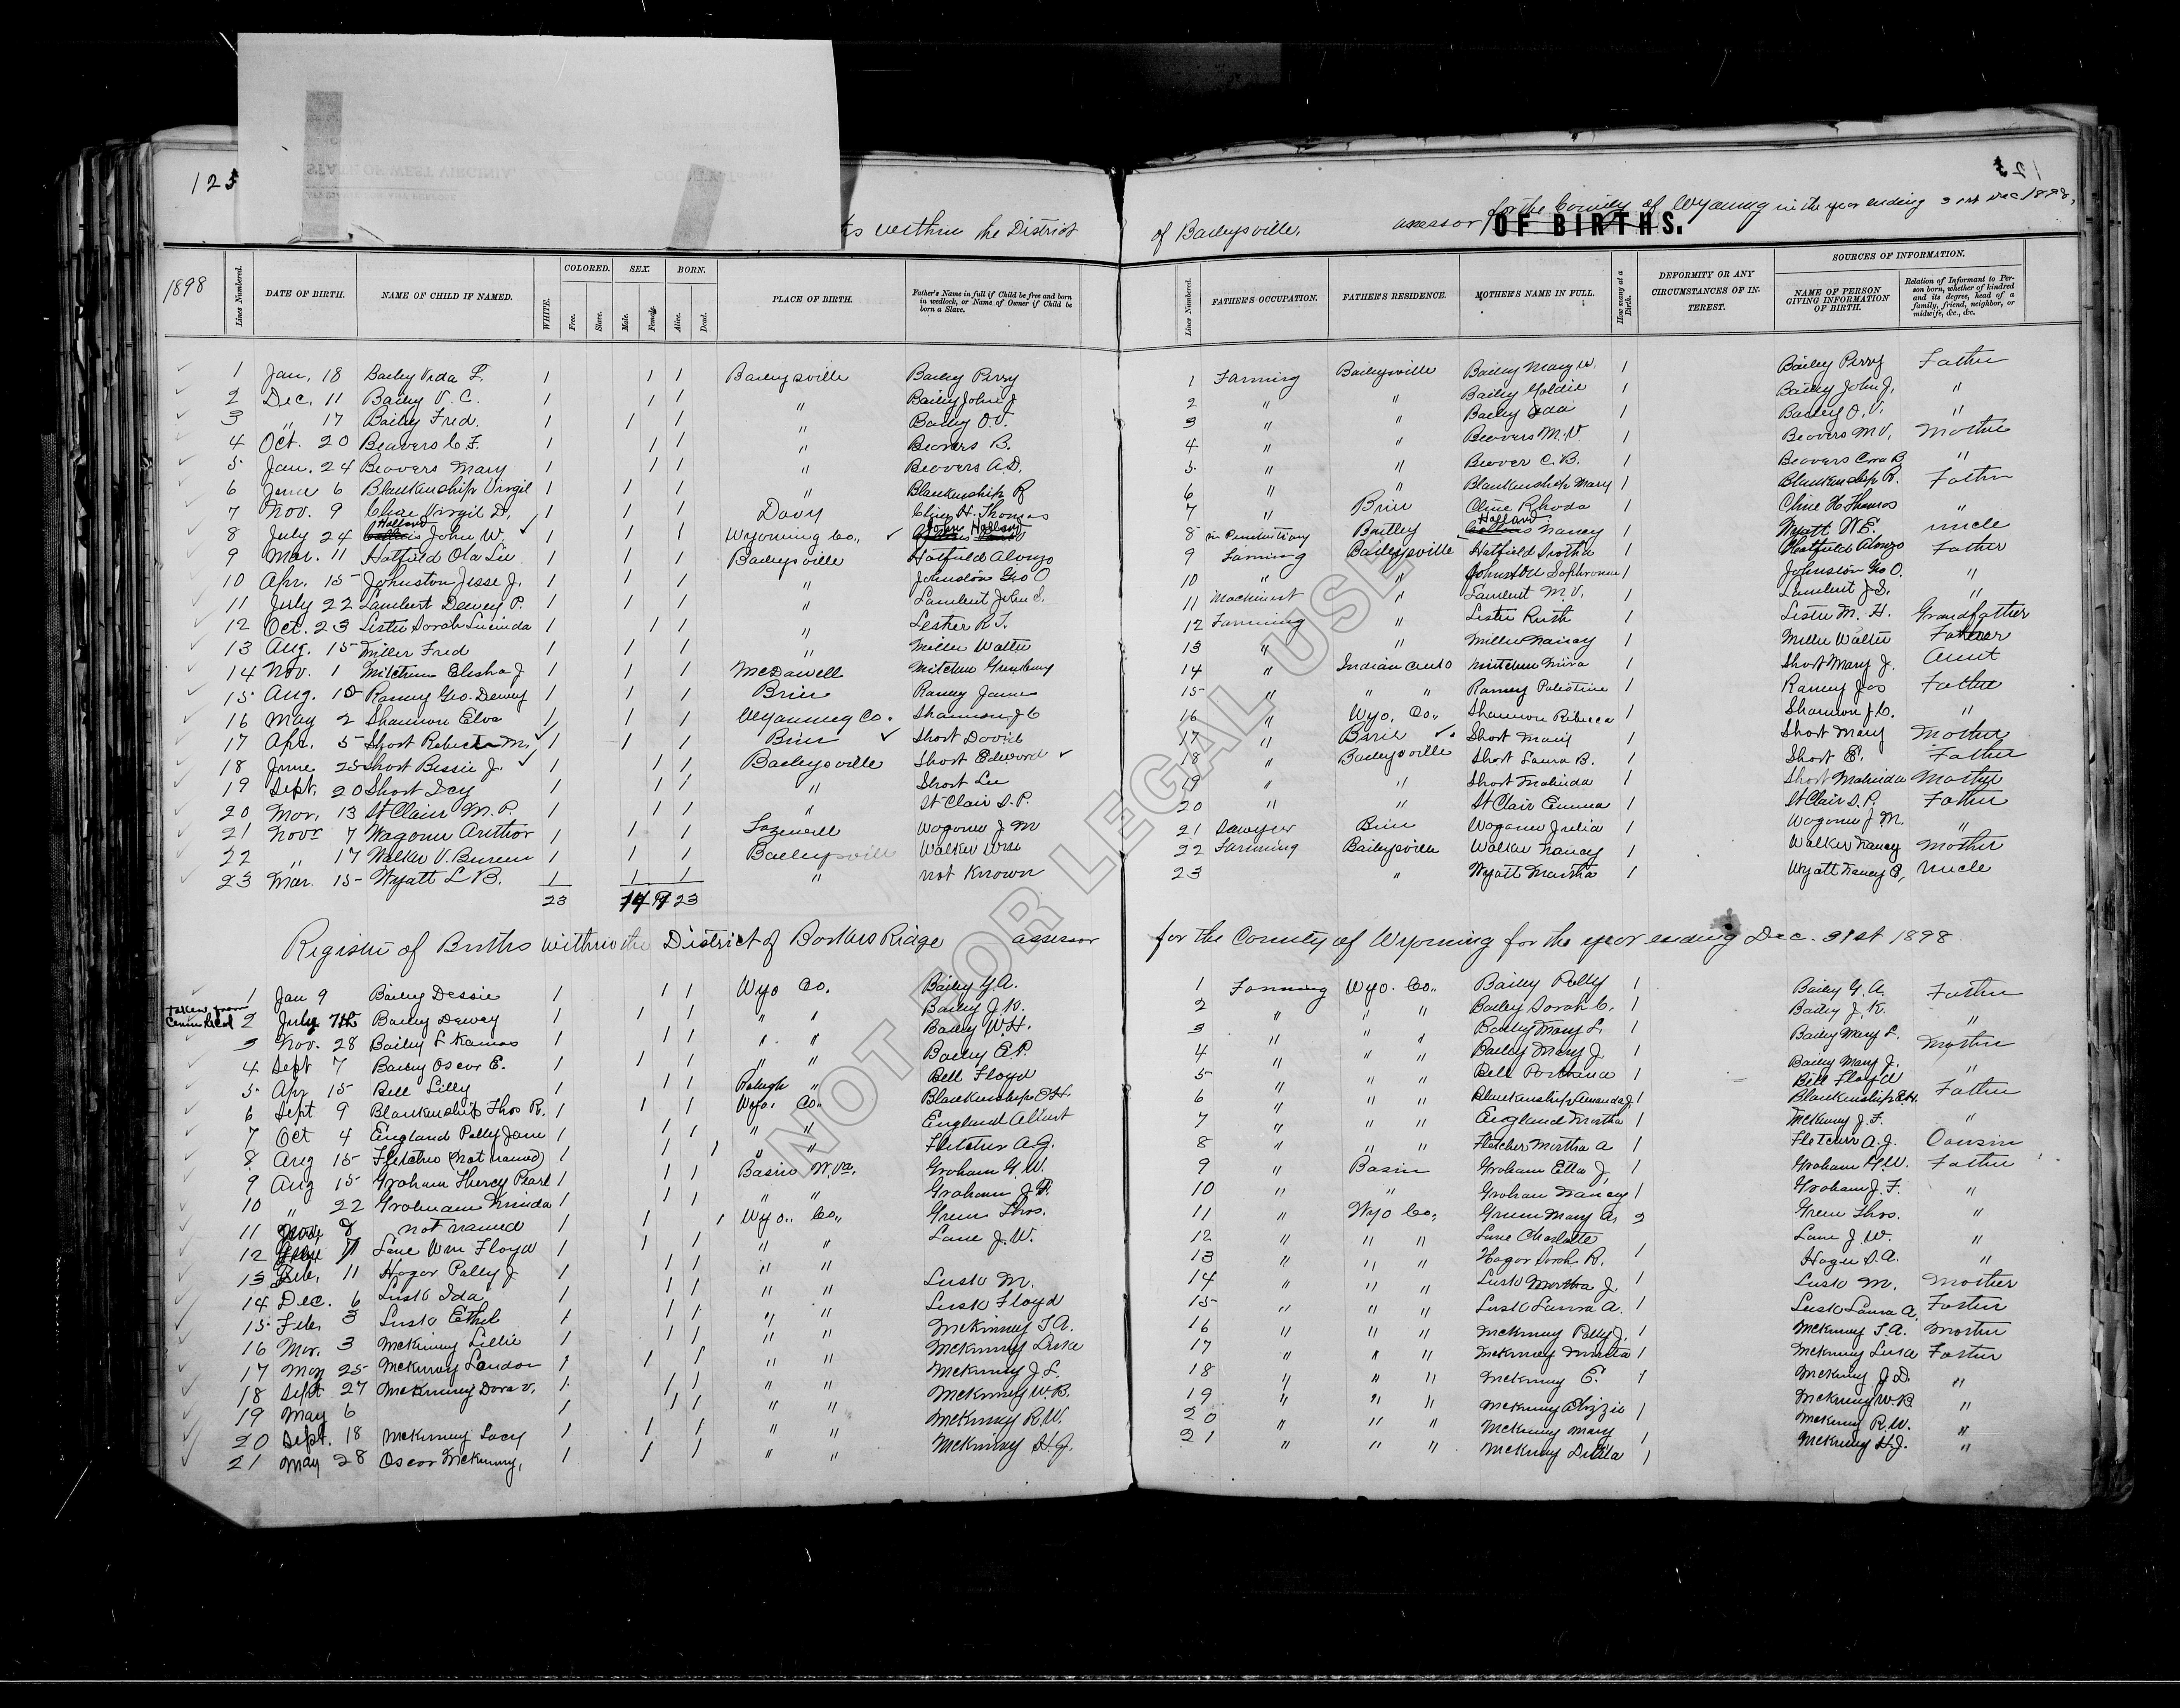 125
STATE OF WEST VIRGINIA
within the District of Baileysville, assessor for the County of Wyoming in the year ending 31st Dec 1898,
OF BIRTHS.
1898
Lines Numbered. DATE OF BIRTH. NAME OF CHILD IF NAMED. WHITE. COLORED. Free. Slave. SEX. Male. Female. BORN. Alive. Dead. PLACE OF BIRTH. Father's Name in full if Child be free and born in wedlock, or Name of Owner if Child be born a Slave. Lines Numbered. FATHER'S OCCUPATION. FATHER'S RESIDENCE. MOTHER'S NAME IN FULL. How many at a Birth. DEFORMITY OR ANY CIRCUMSTANCES OF INTEREST. SOURCES OF INFORMATION. NAME OF PERSON GIVING INFORMATION OF BIRTH. Relation of Informant to Person born, whether of kindred and its degree, head of a family, friend, neighbor, or midwife, &c., &c.
1 Jan. 18 Bailey Vida L. 1 1 1 Baileysville Bailey Perry 1 Farming Baileysville Bailey Mary W. 1 Bailey Perry Father
2 Dec. 11 Bailey V. C. 1 1 1 " Bailey John J 2 " " Bailey Goldie 1 Bailey John J. "
3 " 17 Bailey Fred. 1 1 1 " Bailey O.V. 3 " " Bailey Ada 1 Bailey O.V. "
4 Oct. 20 Beavers C. F. 1 1 1 " Beavers B. 4 " " Beavers M.V. 1 Beavers M.V. Mother
5 Jan. 24 Beavers Mary 1 1 1 " Beavers A.D. 5 " " Beaver C.B. 1 Beavers Cora B "
6 June 6 Blankenship Virgil 1 1 1 " Blankenship R 6 " " Blankenship Mary 1 Blankenship R. Father
7 Nov. 9 Cline Virgil D. 1 1 1 Davy Cline H. Thomas 7 " Brier Cline Rhoda 1 Cline H Thomas "
8 July 24 Holland John W. 1 1 1 Wyoming Co., John Holland 8 in Penitentiary Bartley Holland Nancy 1 Wyatt W.E. uncle
9 Mar. 11 Hatfield Ola Lee 1 1 1 Baileysville Hatfield Alonzo 9 Farming Baileysville Hatfield 1 Hatfield Alonzo Father
10 Apr. 15 Johnston Jesse J. 1 1 1 " Johnston Geo O 10 " " Johnston Sophronia 1 Johnston Geo O. "
11 July 22 Lambert Dewey P. 1 1 1 " Lambert John S. 11 Machinist " Lambert M.V. 1 Lambert J.S. "
12 Oct. 23 Lester Sarah Lucinda 1 1 1 " Lester R.T. 12 Farming " Lester Ruth 1 Lester M. H. Grandfather
13 Aug. 15 Miller Fred 1 1 1 " Miller Walter 13 " " Miller Nancy 1 Miller Walter Father
14 Nov. 1 Mitchem Elisha J 1 1 1 McDowell Mitchem Greenberry 14 " Indian Mitchem 1 Short Mary J. Aunt
15 Aug. 15 Ramey Geo. Dewey 1 1 1 Brier Ramey James 15 " " " Ramey Palestine 1 Ramey Jas Father
16 May 2 Shannon Elva 1 1 1 Wyoming Co. Shannon J C 16 " Wyo. Co., Shannon Rebecca 1 Shannon J.C. "
17 Apr. 5 Short Robert M. 1 1 1 Brier Short David 17 " Brier Short Mary 1 Short Mary Mother
18 June 25 Short Bessie J. 1 1 1 Baileysville Short Edward 18 " Baileysville Short Laura B. 1 Short E. Father
19 Sept. 20 Short Icy 1 1 1 " Short Lee 19 " " Short Malinda 1 Short Malinda Mother
20 Mar. 13 St Clair M.P. 1 1 1 " St Clair S.P. 20 " " St Clair Emma 1 St Clair S.P. Father
21 Novr 7 Wagoner Arthor 1 1 1 Tazewell Wagoner J M 21 Sawyer Brier Wagoner Julia 1 Wagoner J.M. "
22 " 17 Walker V. 1 1 1 Baileysville Walker Wm 22 Farming Baileysville Walker Nancy 1 Walker Nancy Mother
23 Mar. 15 Wyatt L B. 1 1 1 " not known 23 " Wyatt Martha 1 Wyatt Nancy E, Uncle
23 14 9 23
Register of Births within the District of Barkers Ridge assessor for the County of Wyoming for the year ending Dec. 31st 1898
1 Jan 9 Bailey Dessie 1 1 1 Wyo Co. Bailey G.A. 1 Farming Wyo. Co., Bailey Polly 1 Bailey G.A. Father
taken from
2 July 7th Bailey Dewey 1 1 1 " " Bailey J.K. 2 " " " Bailey Sarah C. 1 Bailey J.K. "
3 Nov. 28 Bailey L 1 1 1 " " Bailey W.H. 3 " " " Bailey Mary L. 1 Bailey Mary L. Mother
4 Sept 7 Bailey Oscar E. 1 1 1 " " Bailey E.P. 4 " " " Bailey Mary J 1 Bailey Mary J. "
5 Apr 15 Bell Lilly 1 1 1 Raleigh " Bell Floyd 5 " " " Bell 1 Bell Floyd Father
6 Sept 9 Blankenship Thos R. 1 1 1 Wyo. Co. Blankenship E.H. 6 " " " Blankenship Amanda J. 1 Blankenship E.H.
7 Oct 4 England Polly Jane 1 1 1 " " England Albert 7 " " " England Martha 1 McKinney J.F. "
8 Aug 15 Fletcher (Not named) 1 1 1 " " Fletcher A.J. 8 " " " Fletcher Martha A 1 Fletcher A.J. Cousin
9 Aug 15 Graham Pearl 1 1 1 Basin W.Va. Graham G.W. 9 " Basin Graham Etta J, 1 Graham G.W. Father
10 " 22 Graham 1 1 1 " " Graham J.F. 10 " " Graham Nancy 1 Graham J.F. "
11 not named 1 1 1 Wyo. Co., Green Thos. 11 " Wyo Co., Green Mary A. 2 Green Thos. "
12 Lane Wm Floyd 1 1 1 " " Lane J.W. 12 " " " Lane Charlotte Lane J.W. "
13 Feb. 11 Hagar Polly J 1 1 1 " " 13 " " " Hagar Sarah R. 1 Hager S.A. "
14 Dec. 6 Lusk Ida 1 1 1 " " Lusk M. 14 " " " Lusk Martha J. 1 Lusk M. Mother
15 Feb. 3 Lusk Ethel 1 1 1 " " Lusk Floyd 15 " " " Lusk Laura A. 1 Lusk Laura A, Father
16 Mar. 3 McKinney Lillie 1 1 1 " " McKinney T.A. 16 " " " McKinney Polly J. 1 McKinney T.A. Mother
17 May 25 McKinney Landon 1 1 1 " " McKinney 17 " " " McKinney 1 McKinney Father
18 Sept 27 McKinney Dora V. 1 1 1 " " McKinney J.L. 18 " " " McKinney E. 1 McKinney J.D. "
19 May 6 1 1 1 " " McKinney W.B. 19 " " " McKinney 1 McKinney W.B "
20 Sept. 18 McKinney Lacy 1 1 1 " " McKinney R.W. 20 " " " McKinney Mary 1 McKinney R.W. "
21 May 28 Oscar McKinney, 1 1 1 " " McKinney H.J. 21 " " " McKinney 1 McKinney H.J. "
NOT FOR LEGAL USE